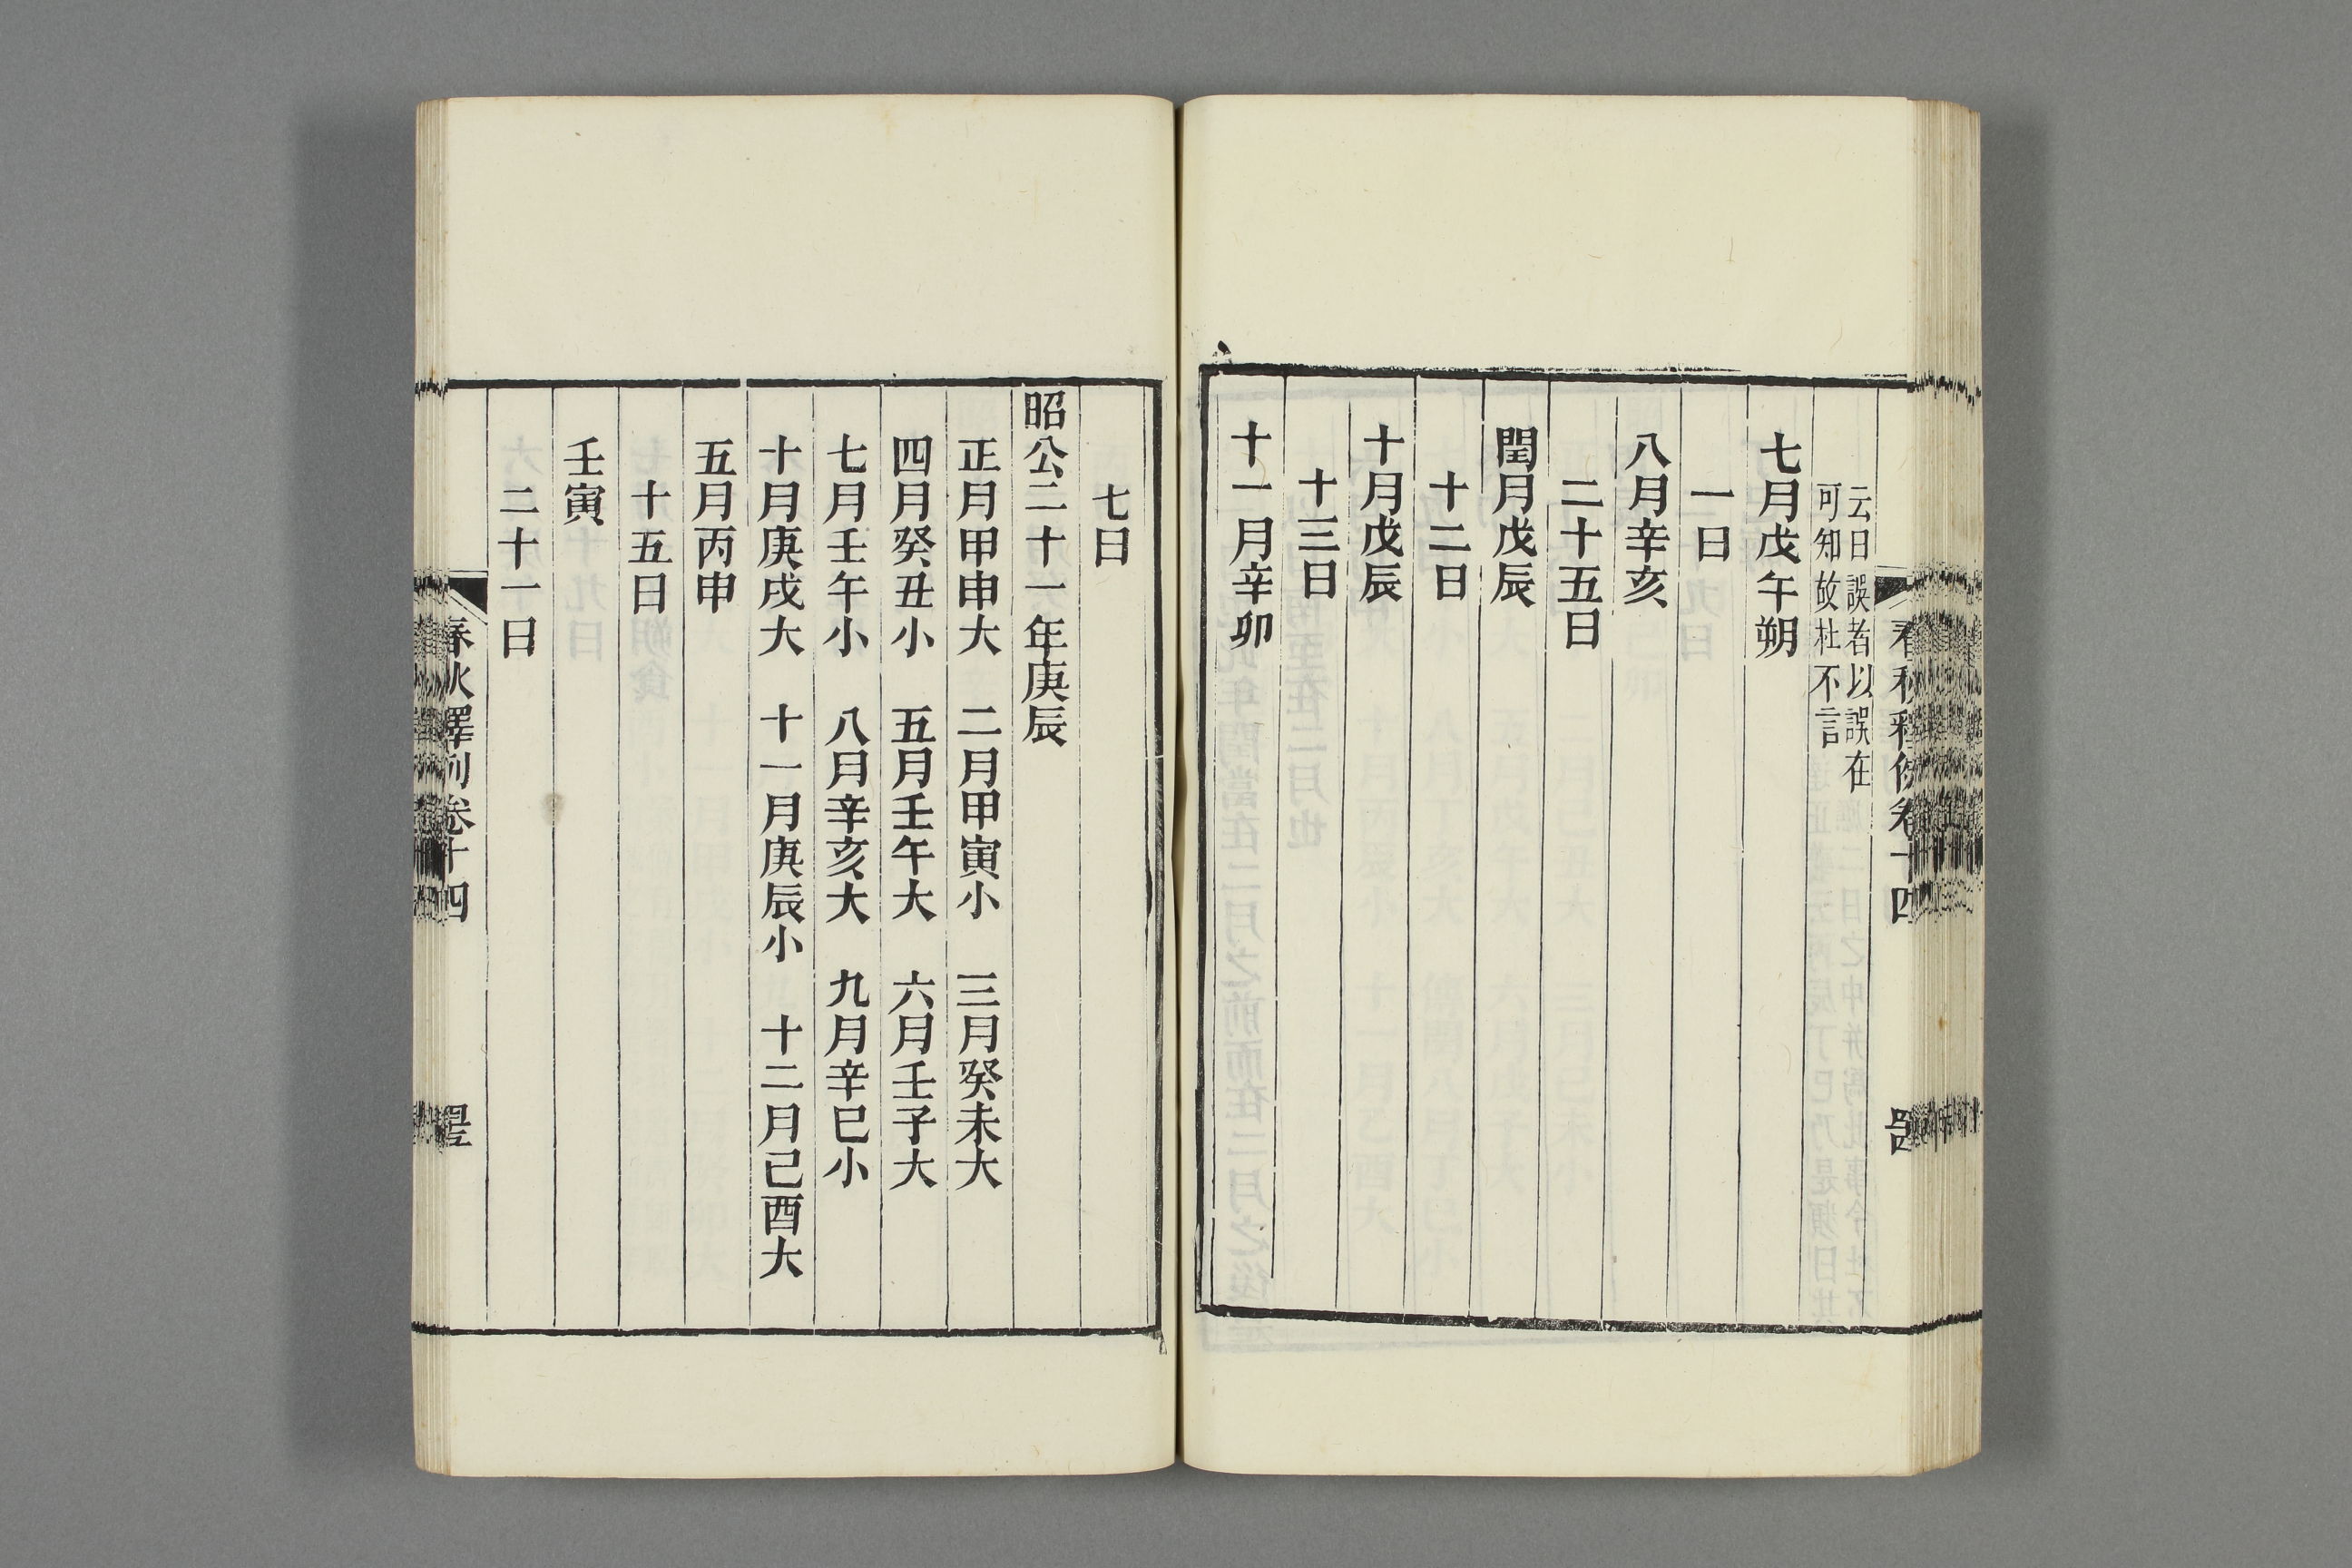 云日誤者以誤在
可知故杜不言
七月戊午朔
一日
八月辛亥
二十五日
閏月戊辰
十二日
十月戊辰
十三日
十一月辛卯
七日
昭公二十一年庚辰
正月甲申大　二月甲寅小　三月癸未大
四月癸丑小　五月壬午大　六月壬子大
七月壬午小　八月辛亥大　九月辛巳小
十月庚戌大　十一月庚辰小　十二月己酉大
五月丙申
十五日
壬寅
二十一日
春秋釋例卷十四